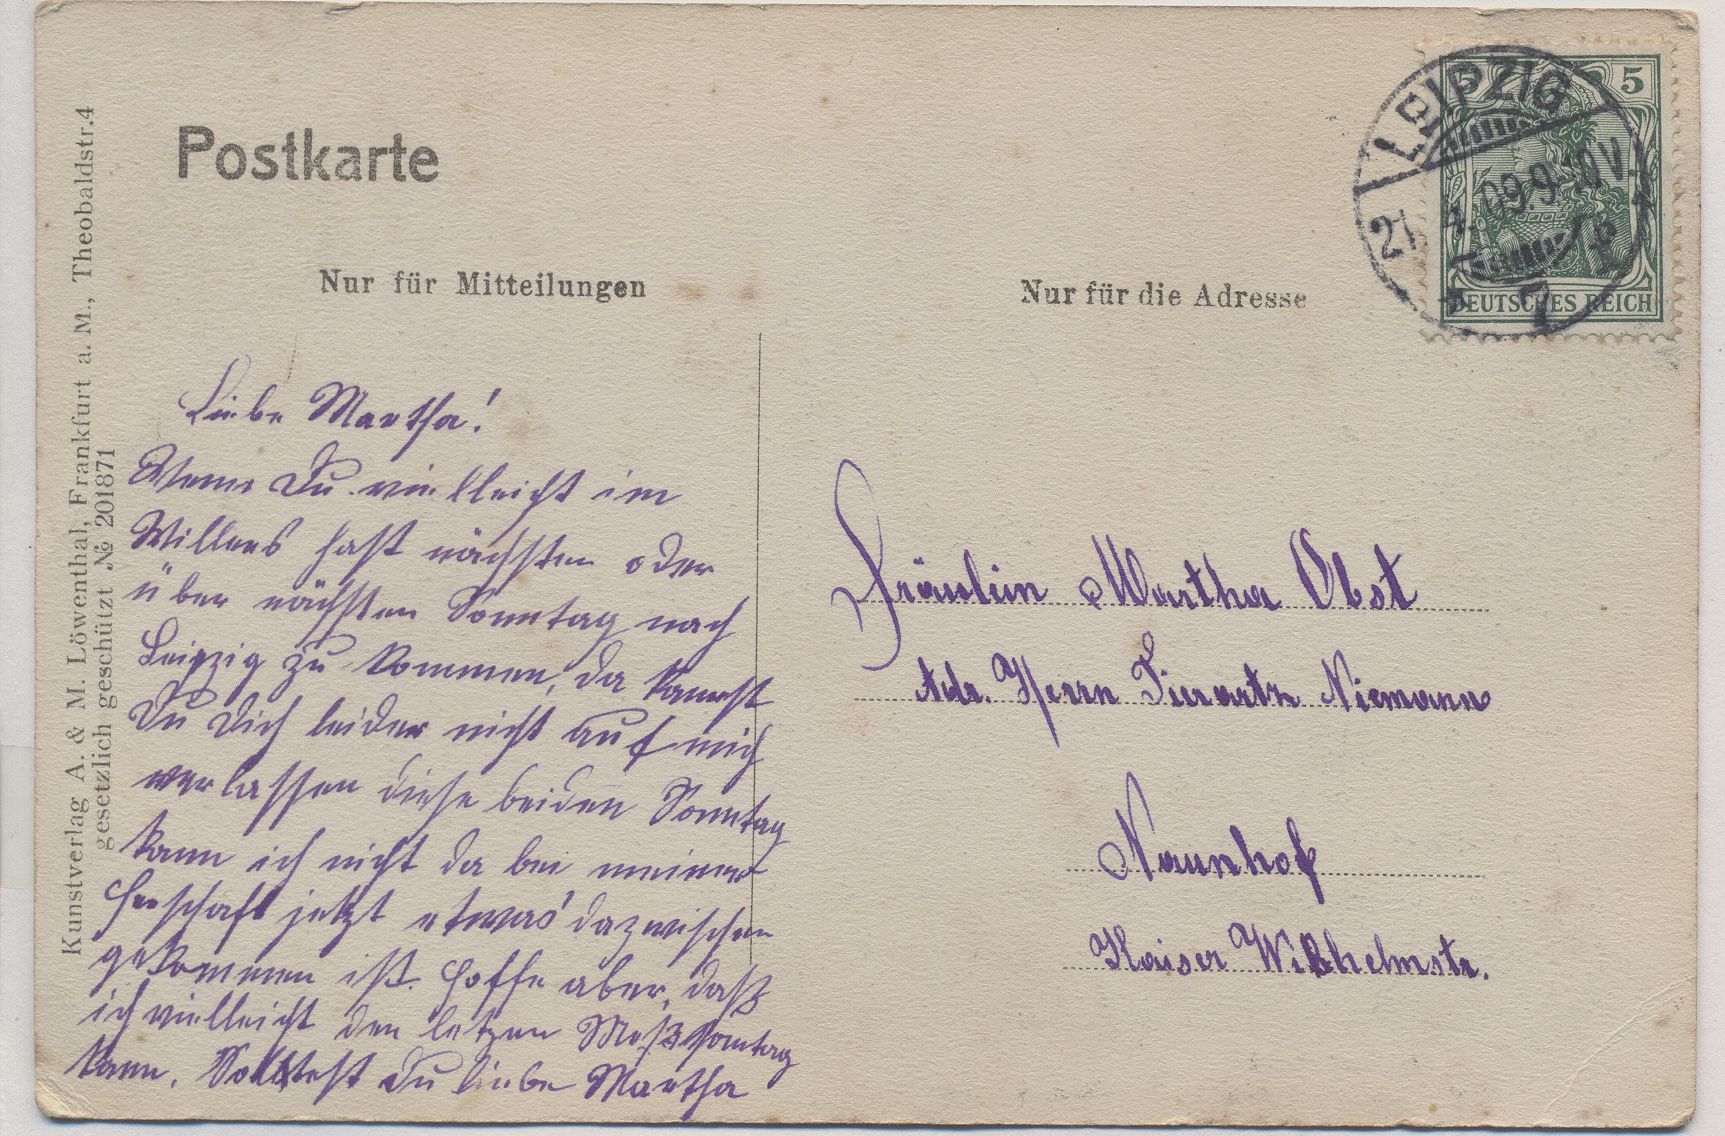 Postkarte
Nur für Mitteilungen
Nur für die Adresse
LEIPZIG
21.4.09.9-10V.
7
5 5
DEUTSCHES REICH
Kunstverlag A. & M. Löwenthal, Frankfurt a. M., Theobaldstr. 4
gesetzlich geschützt № 201871
Liebe Martha!
Wenn Du vielleicht im
Willens hast nächsten oder
über nächsten Sonntag nach
Leipzig zu kommen, da kannst
Du Dich leider nicht auf mich
verlassen diese beiden Sonntag
kann ich nicht da bei meiner
Herschaft jetzt etwas dazwischen
gekommen ist. Hoffe aber, daß
ich vielleicht den letzen Meßsonntag
kann. Solltest Du liebe Martha
Fräulein Martha Obst
Adr. Herrn Tierartz Niemann
Naunhof
Kaiser Wilhelmstr.